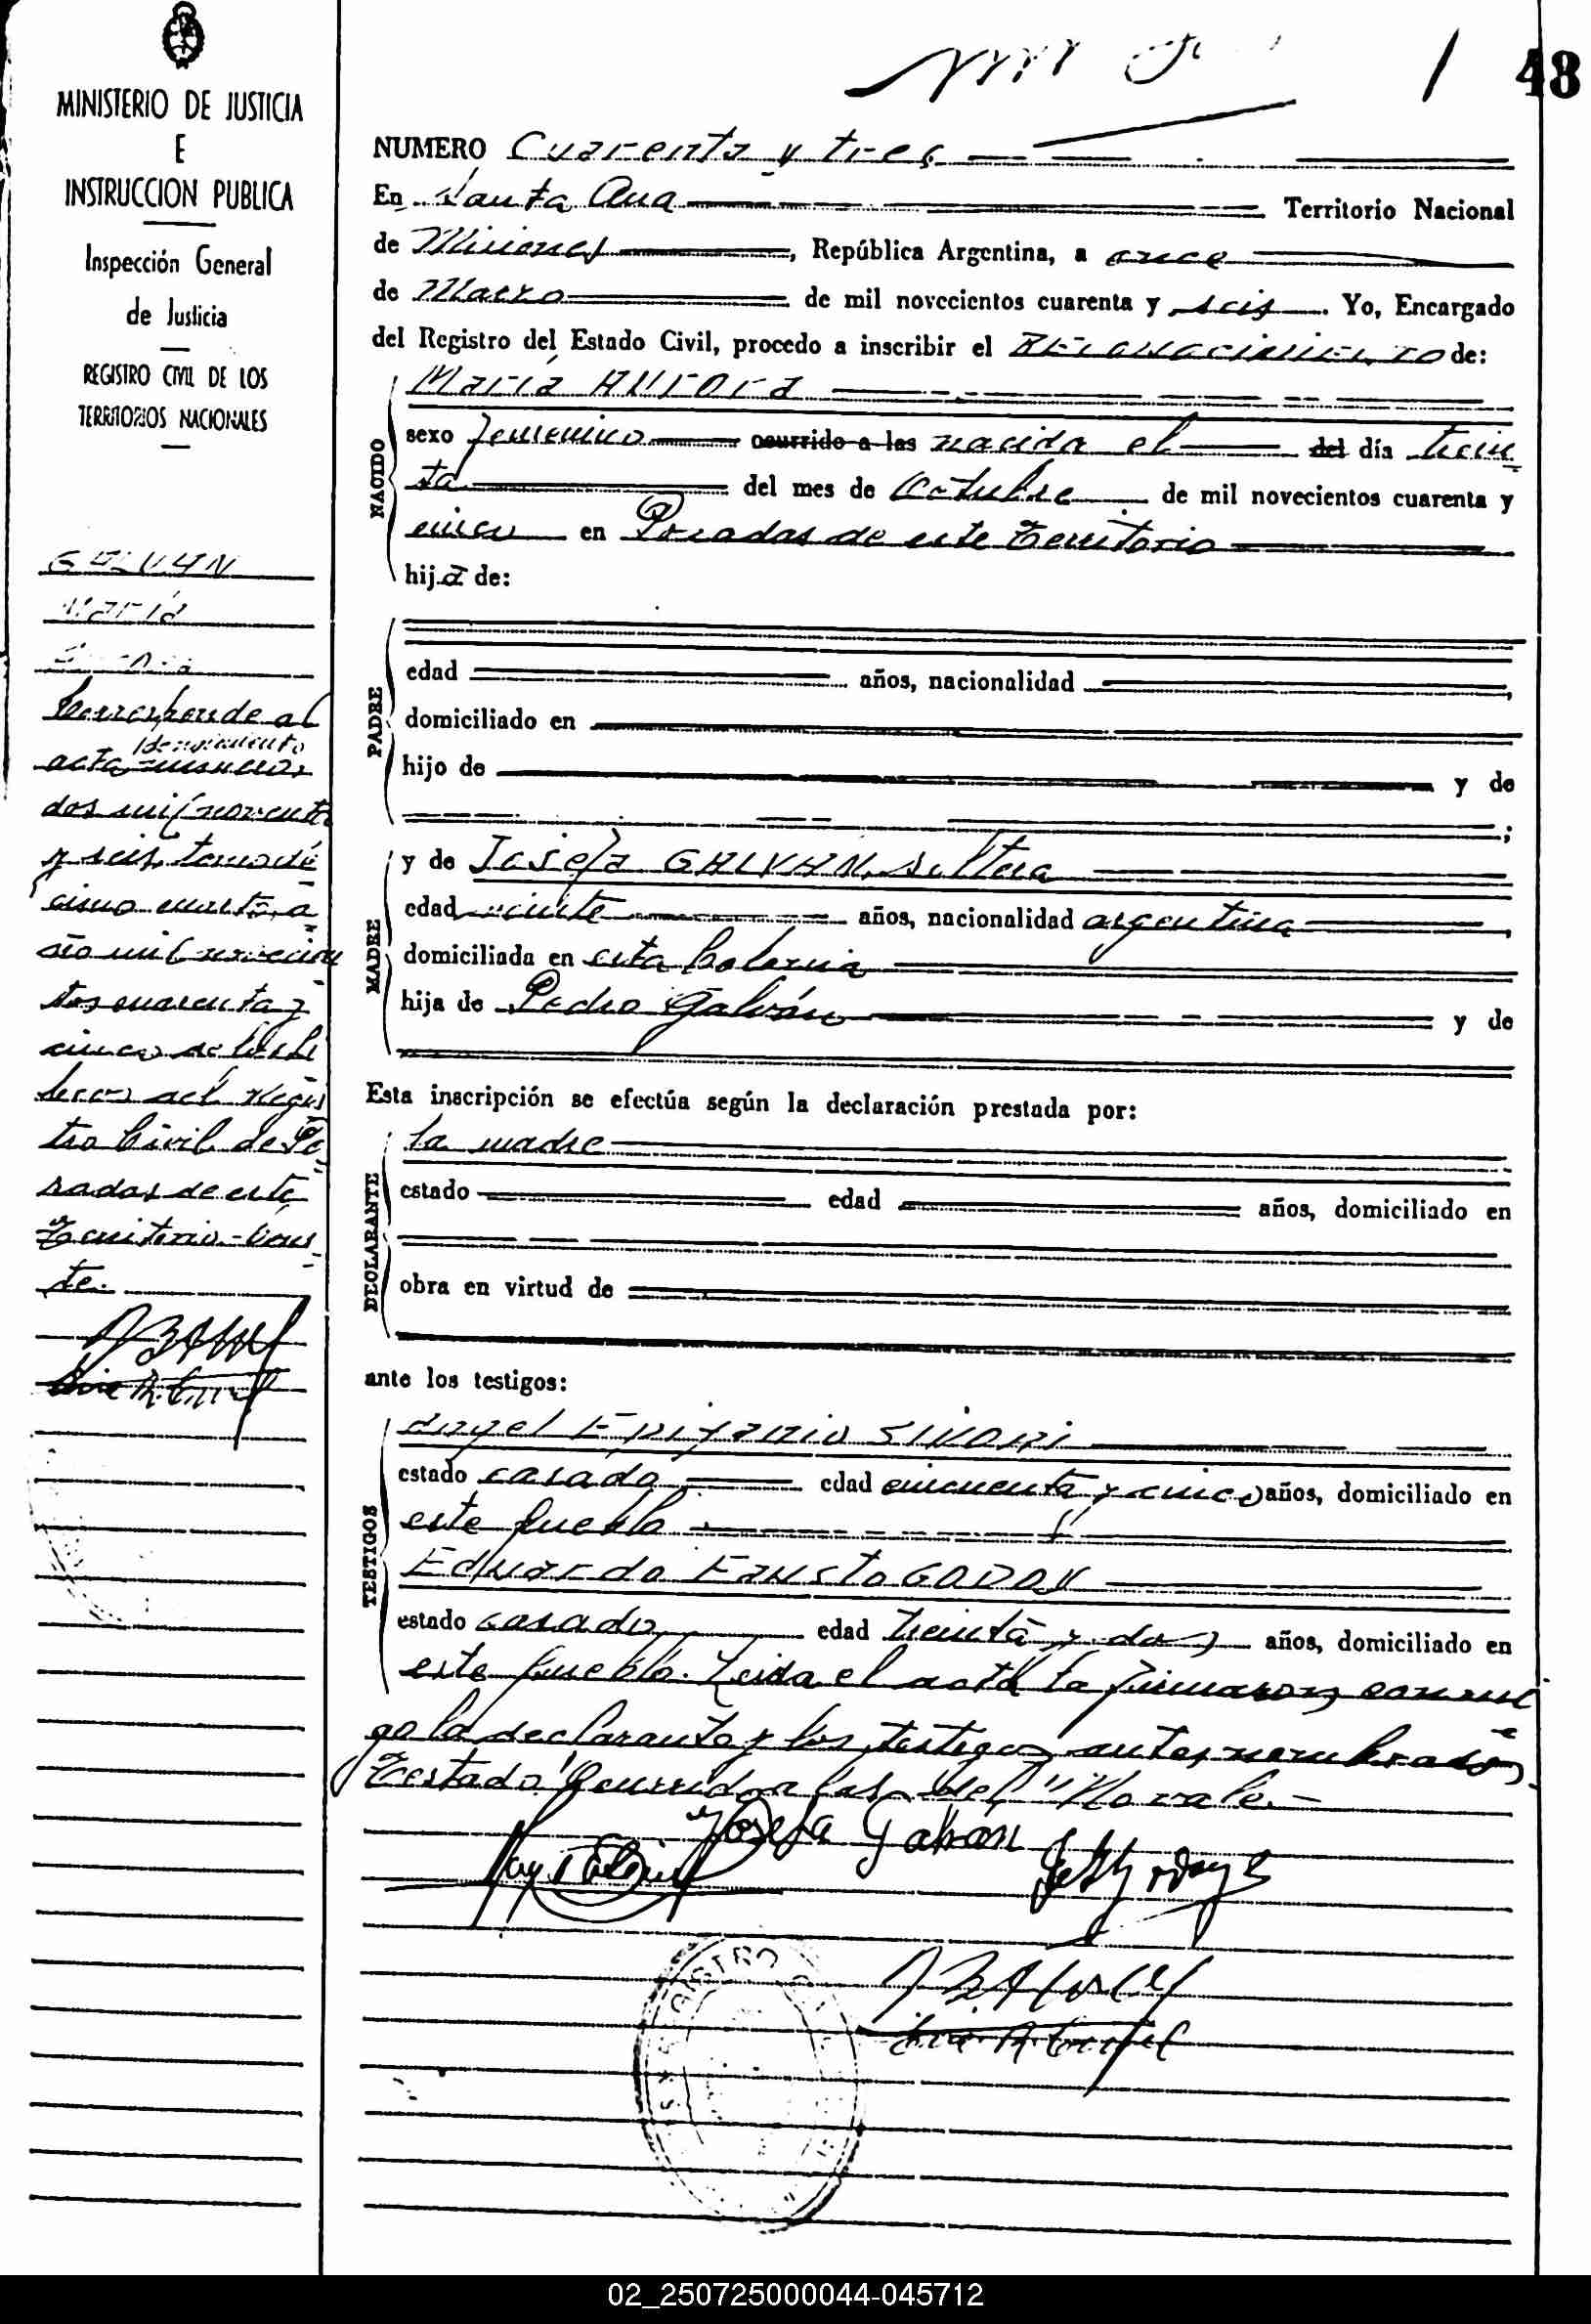 48
MINISTERIO DE JUSTICIA
E
INSTRUCCION PUBLICA
Inspección General
de Justicia
REGISTRO CIVIL DE LOS
TERRITORIOS NACIONALES
GALVAN
María
Aurora
Corresponde al
acta de nacimiento
dos mil novent
y seis, tomo dé
cimo cuarto, a
ño mil novecien
tos cuarenta y
cinco de los li
bros del Regis
tro Civil de Po
sadas de este
Territorio.- Cons
te.
NUMERO Cuarenta y tres
En Santa Ana Territorio Nacional
de Misiones, República Argentina, a once
de Marzo de mil novecientos cuarenta y seis. Yo, Encargado
del Registro del Estado Civil, procedo a inscribir el RECONOCIMIENTO de:
NACIDO
María AURORA
sexo femenino ocurrido a las nacida el del día trein
ta del mes de Octubre de mil novecientos cuarenta y
cinco en Posadas de este Territorio
hija de:
PADRE
edad años, nacionalidad ,
domiciliado en
hijo de y de
;
MADRE
y de Josefa GALVAN, soltera
edad veinte años, nacionalidad argentina,
domiciliada en esta Colonia
hija de Pedro Galván y de
Esta inscripción se efectúa según la declaración prestada por:
DECLARANTE
la madre
estado edad años, domiciliado en
obra en virtud de
ante los testigos:
TESTIGOS
Angel Epifanio
estado casado edad cincuenta y cinco años, domiciliado en
este pueblo
Eduardo Fausto GODOY
estado casado edad treinta y dos años, domiciliado en
este pueblo. Leida el acta la firmaron conmi
go la declarante y los testigos antes nombrados.
Testado "Ocurrido a las del" No vale.-
Josefa Galvan
REGISTRO
02_250725000044-045712